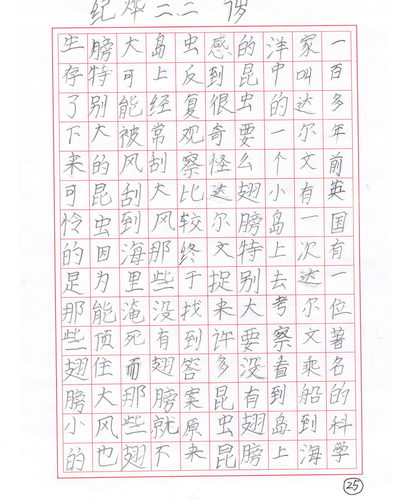 纪烨 二.二
一百多年前英国有一位著名的科学
家叫达尔文有一次达尔文乘船到海
洋中的一个小岛上去考察看到岛上
的昆虫要么翅膀特别大要没有翅膀
感到很奇怪达尔文捉来许多昆虫昆
虫反复观察比较终于找到答案原来
岛上经常刮大风那些没有翅膀就不
大可能被风刮到海里淹死而那些翅
膀特别大的昆虫因为能顶住大风也
生存了下来可怜的是那些翅膀小的
25